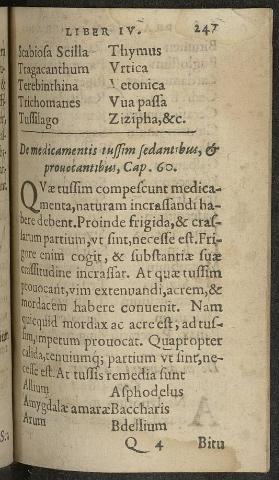 LIBER IV. 247
Scabiosa Scilla Thymus
Tragacanthum Vrtica
Terebinthina Vetonica
Trichomanes Vua passa
Tussilago Zizipha, &c.
De medicamentis tussim sedantibus, &
prouocantibus, Cap. 60.
QVæ tussim compescunt medica-
menta, naturam incrassandi ha-
bere debent. Proinde frigida, & cras-
sarum partium, vt sint, necesse est. Fri-
gore enim cogit, & substantiæ suæ
crassitudine incrassat. At quæ tussim
prouocant, vim extenuandi, acrem, &
mordacem habere conuenit. Nam
quicquid mordax ac acre est, ad tus-
sim, impetum prouocat. Quapropter
calida, tenuiumq; partium vt sint, ne-
cesse est. At tussis remedia sunt
Allium Asphodelus
Amygdalæ amaræ Baccharis
Arum Bdellium
Q 4 Bitu